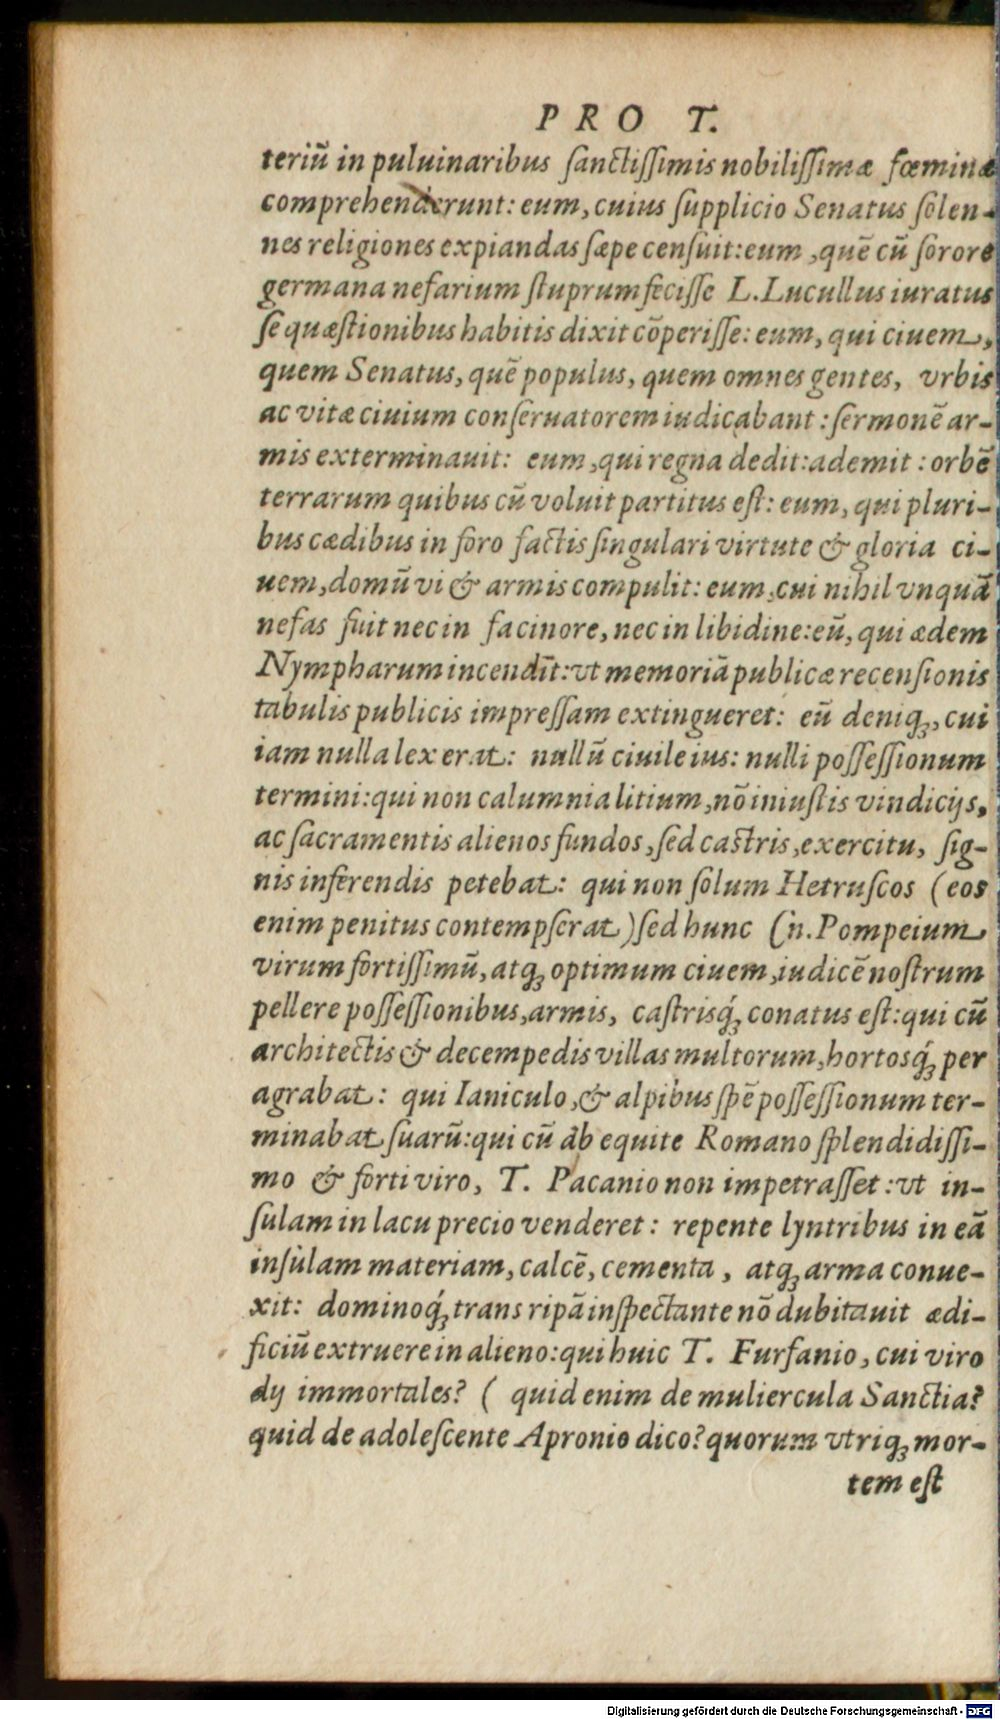 PRO T.
teriū in puluinaribus ſanctiſſimis nobiliſſimæ fœminæ
comprehenderunt: eum, cuius ſupplicio Senatus ſolen-
nes religiones expiandas ſæpe cenſuit: eum, quē cū ſorore
germana nefarium ſtuprum feciſſe L. Lucullus iuratus
ſe quæſtionibus habitis dixit cōperiſſe: eum, qui ciuem,
quem Senatus, quē populus, quem omnes gentes, vrbis
ac vitæ ciuium conſeruatorem iudicabant: ſermonē ar-
mis exterminauit: eum, qui regna dedit: ademit: orbē
terrarum quibus cū voluit partitus eſt: eum, qui pluri-
bus cædibus in foro factis ſingulari virtute & gloria ci-
uem, domū vi & armis compulit: eum, cui nihil vnquā
nefas fuit nec in facinore, nec in libidine: eū, qui ædem
Nympharum incendīt: vt memoriā publicæ recenſionis
tabulis publicis impreſſam extingueret: eū deniqꝫ, cui
iam nulla lex erat: nullū ciuile ius: nulli poſſeſſionum
termini: qui non calumnia litium, nō iniuſtis vindicijs,
ac ſacramentis alienos fundos, ſed caſtris, exercitu, ſig-
nis inferendis petebat: qui non ſolum Hetruſcos (eos
enim penitus contempſerat) ſed hunc Cn. Pompeium
virum fortiſſimū, atqꝫ optimum ciuem, iudicē noſtrum
pellere poſſeſſionibus, armis, caſtrisq́ꝫ conatus eſt: qui cū
architectis & decempedis villas multorum, hortosq́ꝫ per
agrabat: qui Ianiculo, & alpibus ſpē poſſeſſionum ter-
minabat ſuarū: qui cū ab equite Romano ſplendidiſſi-
mo & forti viro, T. Pacanio non impetraſſet: vt in-
ſulam in lacu precio venderet: repente lyntribus in eā
inſulam materiam, calcē, cementa, atqꝫ arma conue-
xit: dominoq́ꝫ trans ripā inſpectante nō dubitauit ædi-
ficiū extruere in alieno: qui huic T. Furfanio, cui viro
dij immortales? ( quid enim de muliercula Sanctia?
quid de adoleſcente Apronio dico? quorum vtriqꝫ mor-
tem eſt
Digitalisierung gefördert durch die Deutsche Forschungsgemeinschaft - DFG